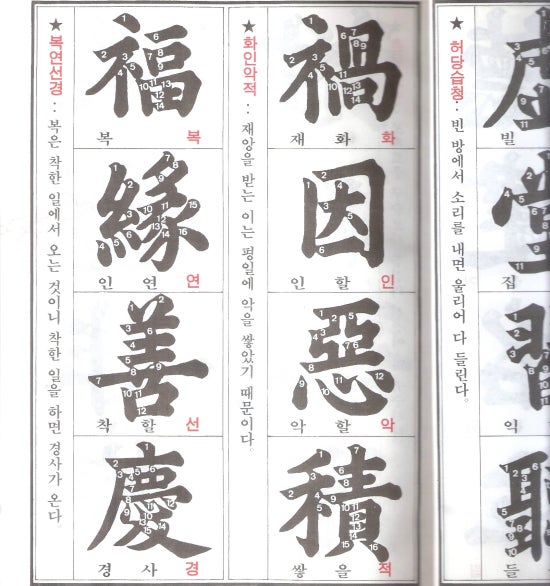 빌
집
익
들
★ 허당습청 : 빈 방에서 소리를 내면 울리어 다 들린다.
禍
재 화 화
因
인 할 인
惡
악 할 악
積
쌓 을 적
★ 화인악적 : 재앙을 받는 이는 평일에 악을 쌓았기 때문이다.
福
복 복
緣
인 연 연
善
착 할 선
慶
경 사 경
★ 복연선경 : 복은 착한 일에서 오는 것이니 착한 일을 하면 경사가 온다.